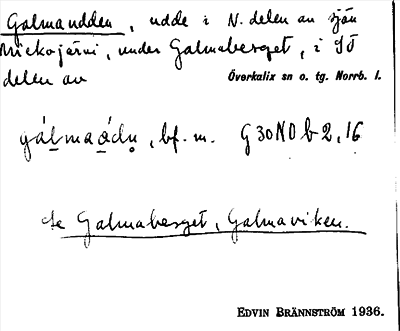 Galmaudden, udde i N. delen av sjön
Mickojärvi, under Galmaberget, i SÖ
delen av Överkalix sn o. tg. Norrb. l.
gálmaádn̥, bf. m. G30NO b 2, 16
Se Galmaberget, Galmaviken.
EDVIN BRÄNNSTRÖM 1936.